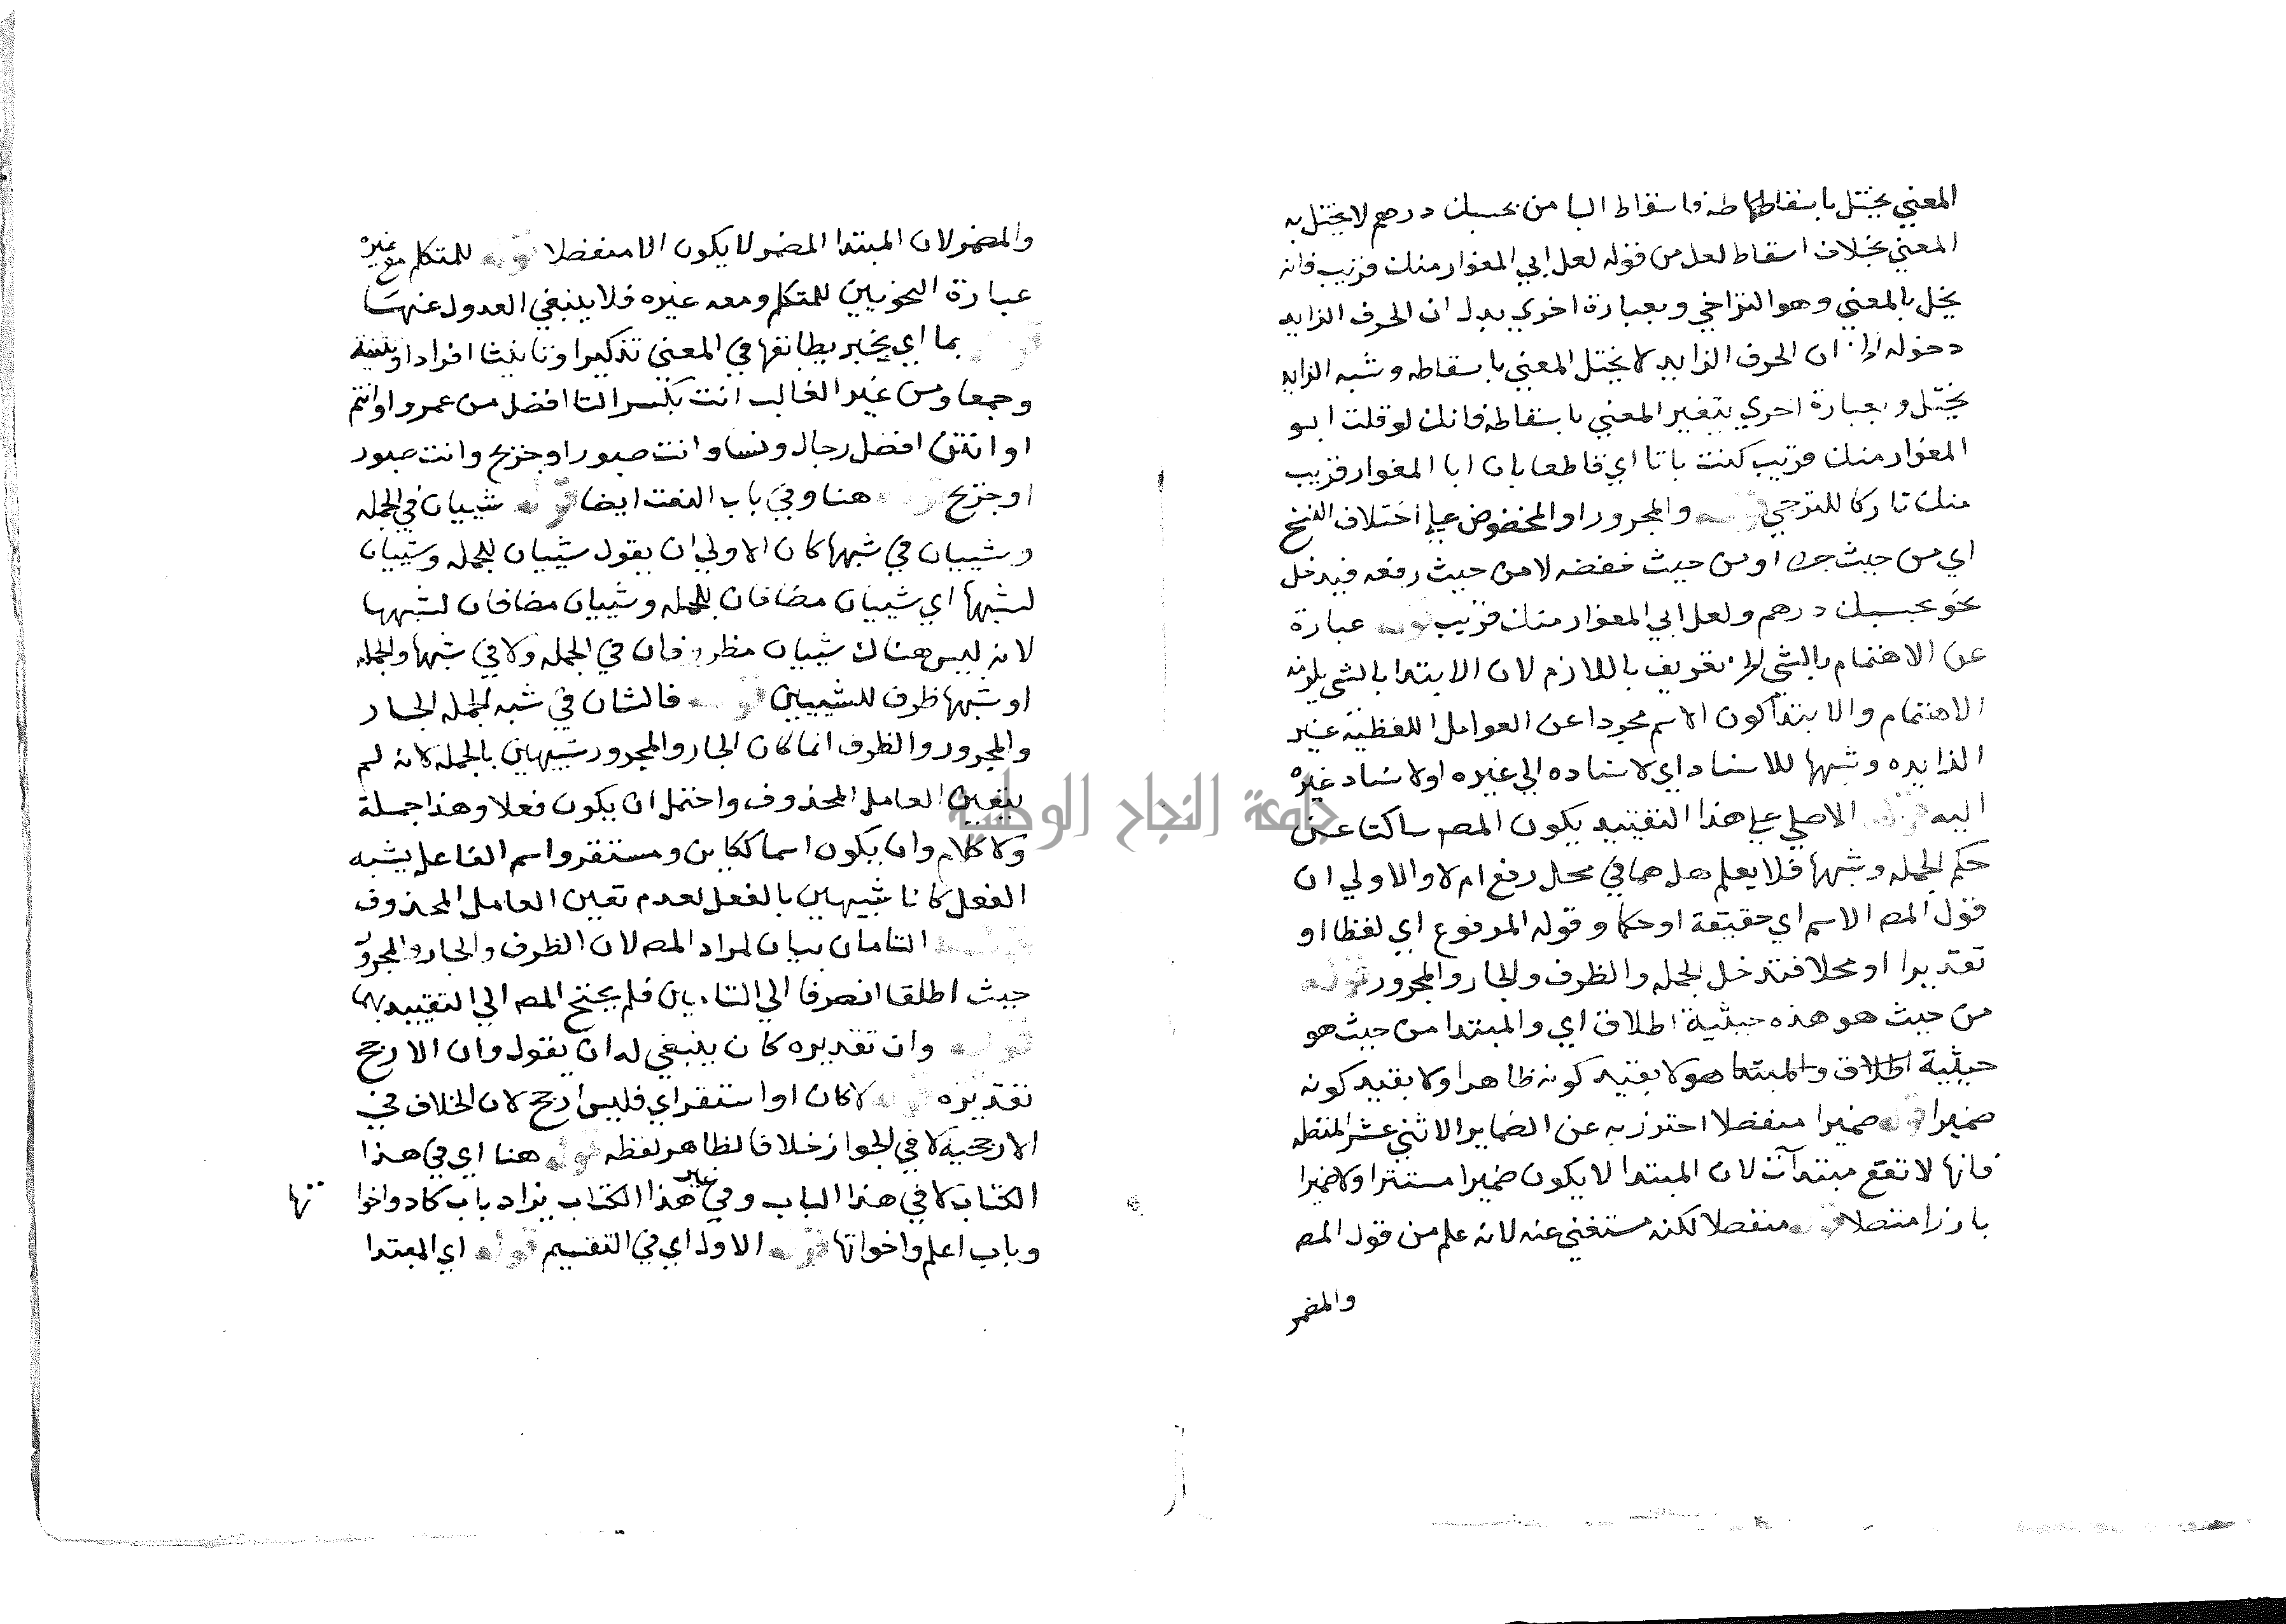 المعني يختل باسقاطها طه فاسقاط البا من بحسبك درهم لا يختل به
المعني بخلاف اسقاط لعل من قوله لعل ابي المغوار منك قريب فانه
يخل بالمعني وهو الترجي وبعبارة اخري يدل ان الحرف الزايد
دخوله ان الحرف الزايد لا يختل المعني باسقاطه وشبه الزايد
يختل وبعبارة اخري يتغير المعني باسقاطه فانك لو قلت ابو
المغوار منك قريب كنت باتا اي قاطعا بان ابا المغوار قريب
منك تاركا للترجي قوله والمجرور او المخفوض علي اختلاف النسخ
اي من حيث جره او من حيث خفضه لا من حيث رفعه فيدخل
نحو بحسبك درهم ولعل ابي المغوار منك قريب قوله عبارة
عن الاهتمام بالشي تعريف باللازم لان الابتدا بالشي يلزمه
الاهتمام والابتدا كون الاسم مجردا عن العوامل اللفظية غير
الزايده وشبهها للاسناد اي لاسناده الي غيره او لاسناد غيره
اليه قوله الاصلي علي هذا التقييد يكون المصـ ساكتا عن
حكم الجمله وشبهها فلا يعلم هل هما في محل رفع ام لا والاولي ان
قول المصـ الاسم اي حقيقة او حكما وقوله المرفوع اي لفظا او
تقديرا او محلا فتدخل الجمله والظرف والجار والمجرور قوله
من حيث هو هذه حيثية اطلاق اي والمبتدا من حيث هو
حيثية اطلاق والمبتدا هو لا بقيد كونه ظاهرا ولا بقيد كونه
ضميرا قوله ضميرا منفصلا احترز به عن الضماير الاثني عشر المتصله
فانها لا تقع مبتدآت لان المبتدا لا يكون ضميرا مستترا ولا ضميرا
بارزا متصلا قوله منفصلا لكنه مستغني عنه لانه علم من قول المصـ
والمضمر
والمضمر لان المبتدا المضمر لا يكون الا منفصلا قوله للمتكلم مع غيره
عبارة النحويين للمتكلم ومعه غيره فلا ينبغي العدول عنها
قوله بما اي بخبر يطابقها في المعني تذكيرا وتانيثا افرادا وتثنية
وجمعا ومن غير الغالب انت بكسر التا افضل من عمرو او انتم
او انتن افضل رجال ونسا وانت صبور او جريح وانت صبور
او جريح قوله هنا وفي باب النعت ايضا قوله شيان في الجمله
وشيان في شبهها كان الاولي ان يقول شيان للجمله وشيان
لشبهها اي شيان مضافان للجمله وشيان مضافان لشبهها
لانه ليس هناك شيان مظروفان في الجمله ولا في شبهها والجمله
او شبهها ظرف للشيين قوله فالشان في شبه الجمله الجار
والمجرور والظرف انما كان الجار والمجرور شبيهين بالجمله لانه لم
يتعين العامل المحذوف واحتمل ان يكون فعلا وهذا جملة
ولا كلام وان يكون اسما ككاين ومستقر واسم الفاعل يشبه
الفعل كانا شبيهين بالفعل لعدم تعين العامل المحذوف
قوله التامان بيان لمراد المصـ لان الظرف والجار والمجرور
حيث اطلقا انصرفا الي التامين فلم يحتج المصـ الي التقييد بهما
قوله وان تقديره كان ينبغي له ان يقول وان الارجح
تقديره قوله لا كان او استقر اي فليس ارجح لان الخلاف في
الارجحية لا في الجواز خلافا لظاهر لفظه قوله هنا اي في هذا
الكتاب لا في هذا الباب وفي غير هذا الكتاب يزاد باب كاد واخواتها
وباب اعلم واخواتها قوله الاول اي في التقسيم قوله اي المبتدا
جامعة النجاح الوطنية